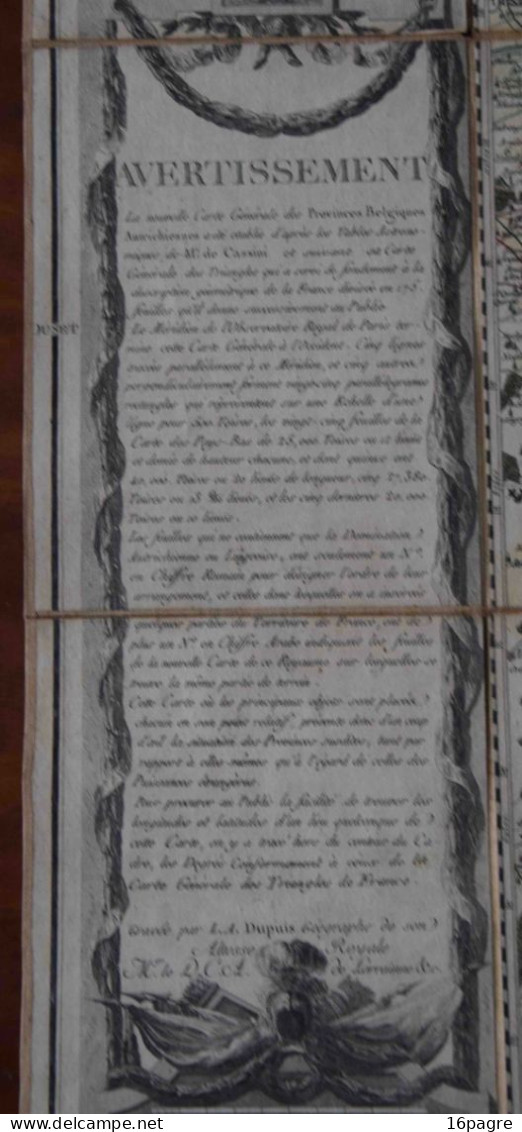 AVERTISSEMENT
La nouvelle Carte Générale des Provinces Belgiques
Autrichiennes a été établie d'après les Tables Astrono-
miques de Mr. de Cassini et suivant sa Carte
Générale des Triangles qui a servi de fondement à la
description géometrique de la France divisée en 175
feuilles qu'il donne successivement au Public.
Le Méridien de l'Observatoire Royal de Paris ter-
mine cette Carte Générale à l'Occident. Cinq lignes
tracées parallèlement à ce Méridien, et cinq autres
perpendiculairement forment vingtcinq parallelogrames
rectangles qui réprésentent sur une Echelle d'une
ligne pour 800 Toises, les vingt-cinq feuilles de la
Carte des Pays-Bas de 25,000 Toises ou 12 lieües
et demie de hauteur chacune, et dont quinze ont
40,000 Toises ou 20 lieües de longueur, cinq 27,380
Toises ou 13 lieües, et les cinq dernières 20,000
Toises ou 10 lieües.
Les feuilles qui ne contiennent que la Domination
Autrichienne ou Liégeoise, ont seulement un No.
en Chiffre Romain pour désigner l'ordre de leur
arrangement, et celles dans lesquelles on a inseré
quelques parties du Territoire de France, ont de
plus un No. en Chiffre Arabe indiquant les feuilles
de la nouvelle Carte de ce Royaume sur lesquelles se
trouve la même partie de terrein.
Cette Carte où les principaux objets sont placés
chacun en son point relatif, présente donc d'un coup
d'œil la situation des Provinces susdites, tant par
rapport à elles-mêmes qu'à l'égard de celles des
Puissances étrangères.
Pour procurer au Public la facilité de trouver les
longitudes et latitudes d'un lieu quelconque de
cette Carte, on y a tracé hors du contour du Ca-
dre, les Degrés Conformement à ceux de la
Carte Générale des Triangles de France.
Gravée par L.A. Dupuis Géographe de son
Altesse Royale
Mr. le D.C.A. de Lorraine &c.
16pagre